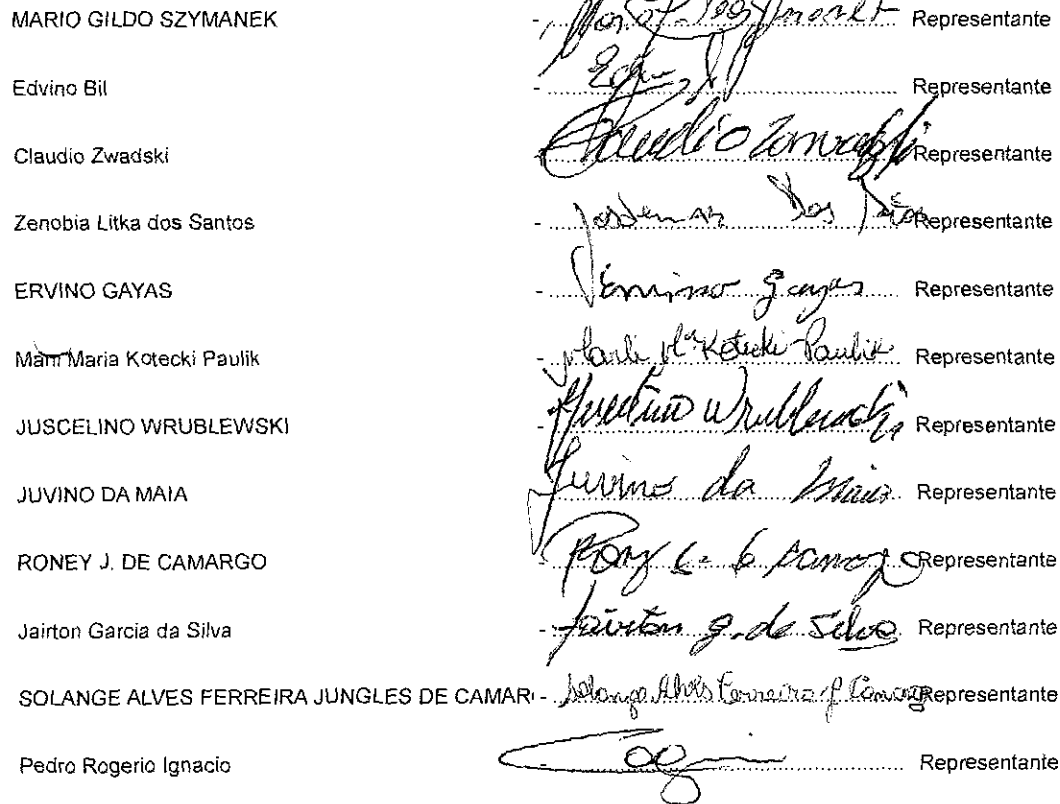 MARIO GILDO SZYMANEK - Representante
Edvino Bil - Representante
Claudio Zwadski - Claudio Zawadzki Representante
Zenobia Litka dos Santos - dos Representante
ERVINO GAYAS - Gayas Representante
Maria Kotecki Paulik - Marli Mª Kotecki Paulik Representante
JUSCELINO WRUBLEWSKI - Juscelino Wrublewski Representante
JUVINO DA MAIA - Juvino da Maia Representante
RONEY J. DE CAMARGO - Representante
Jairton Garcia da Silva - Jairton g. da Silva Representante
SOLANGE ALVES FERREIRA JUNGLES DE CAMAR - Solange Alves Ferreira J Camargo Representante
Pedro Rogerio Ignacio - Representante